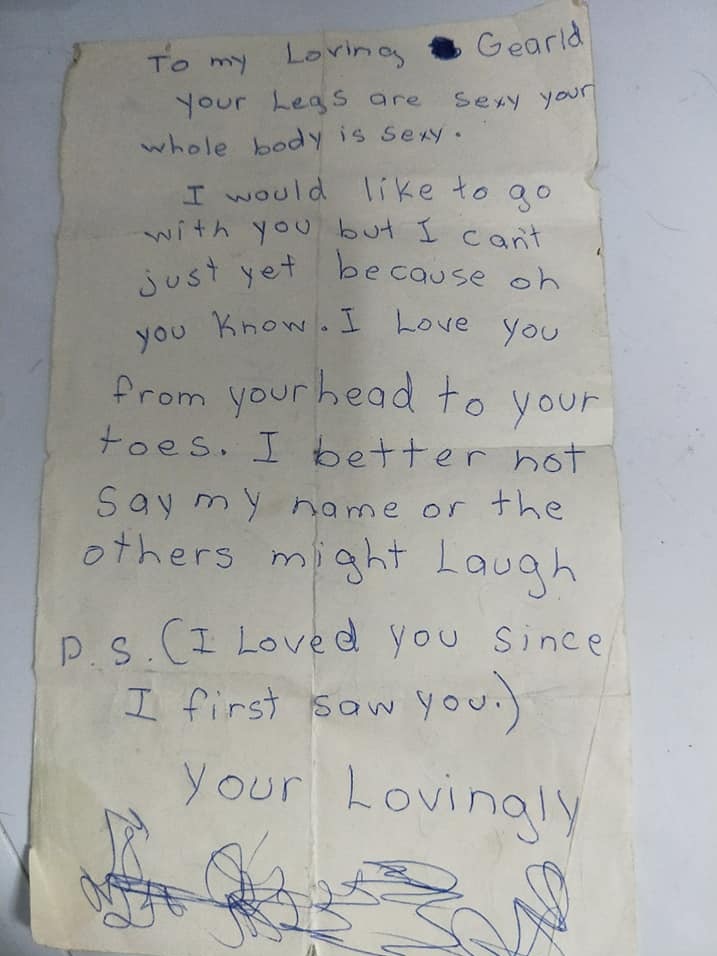 To my Loving Gearld
your Legs are sexy your
whole body is sexy.
I would like to go
with you but I can't
just yet because oh
you know. I Love you
from your head to your
toes. I better not
say my name or the
others might Laugh
P.S. (I Loved you since
I first saw you.)
your Lovingly